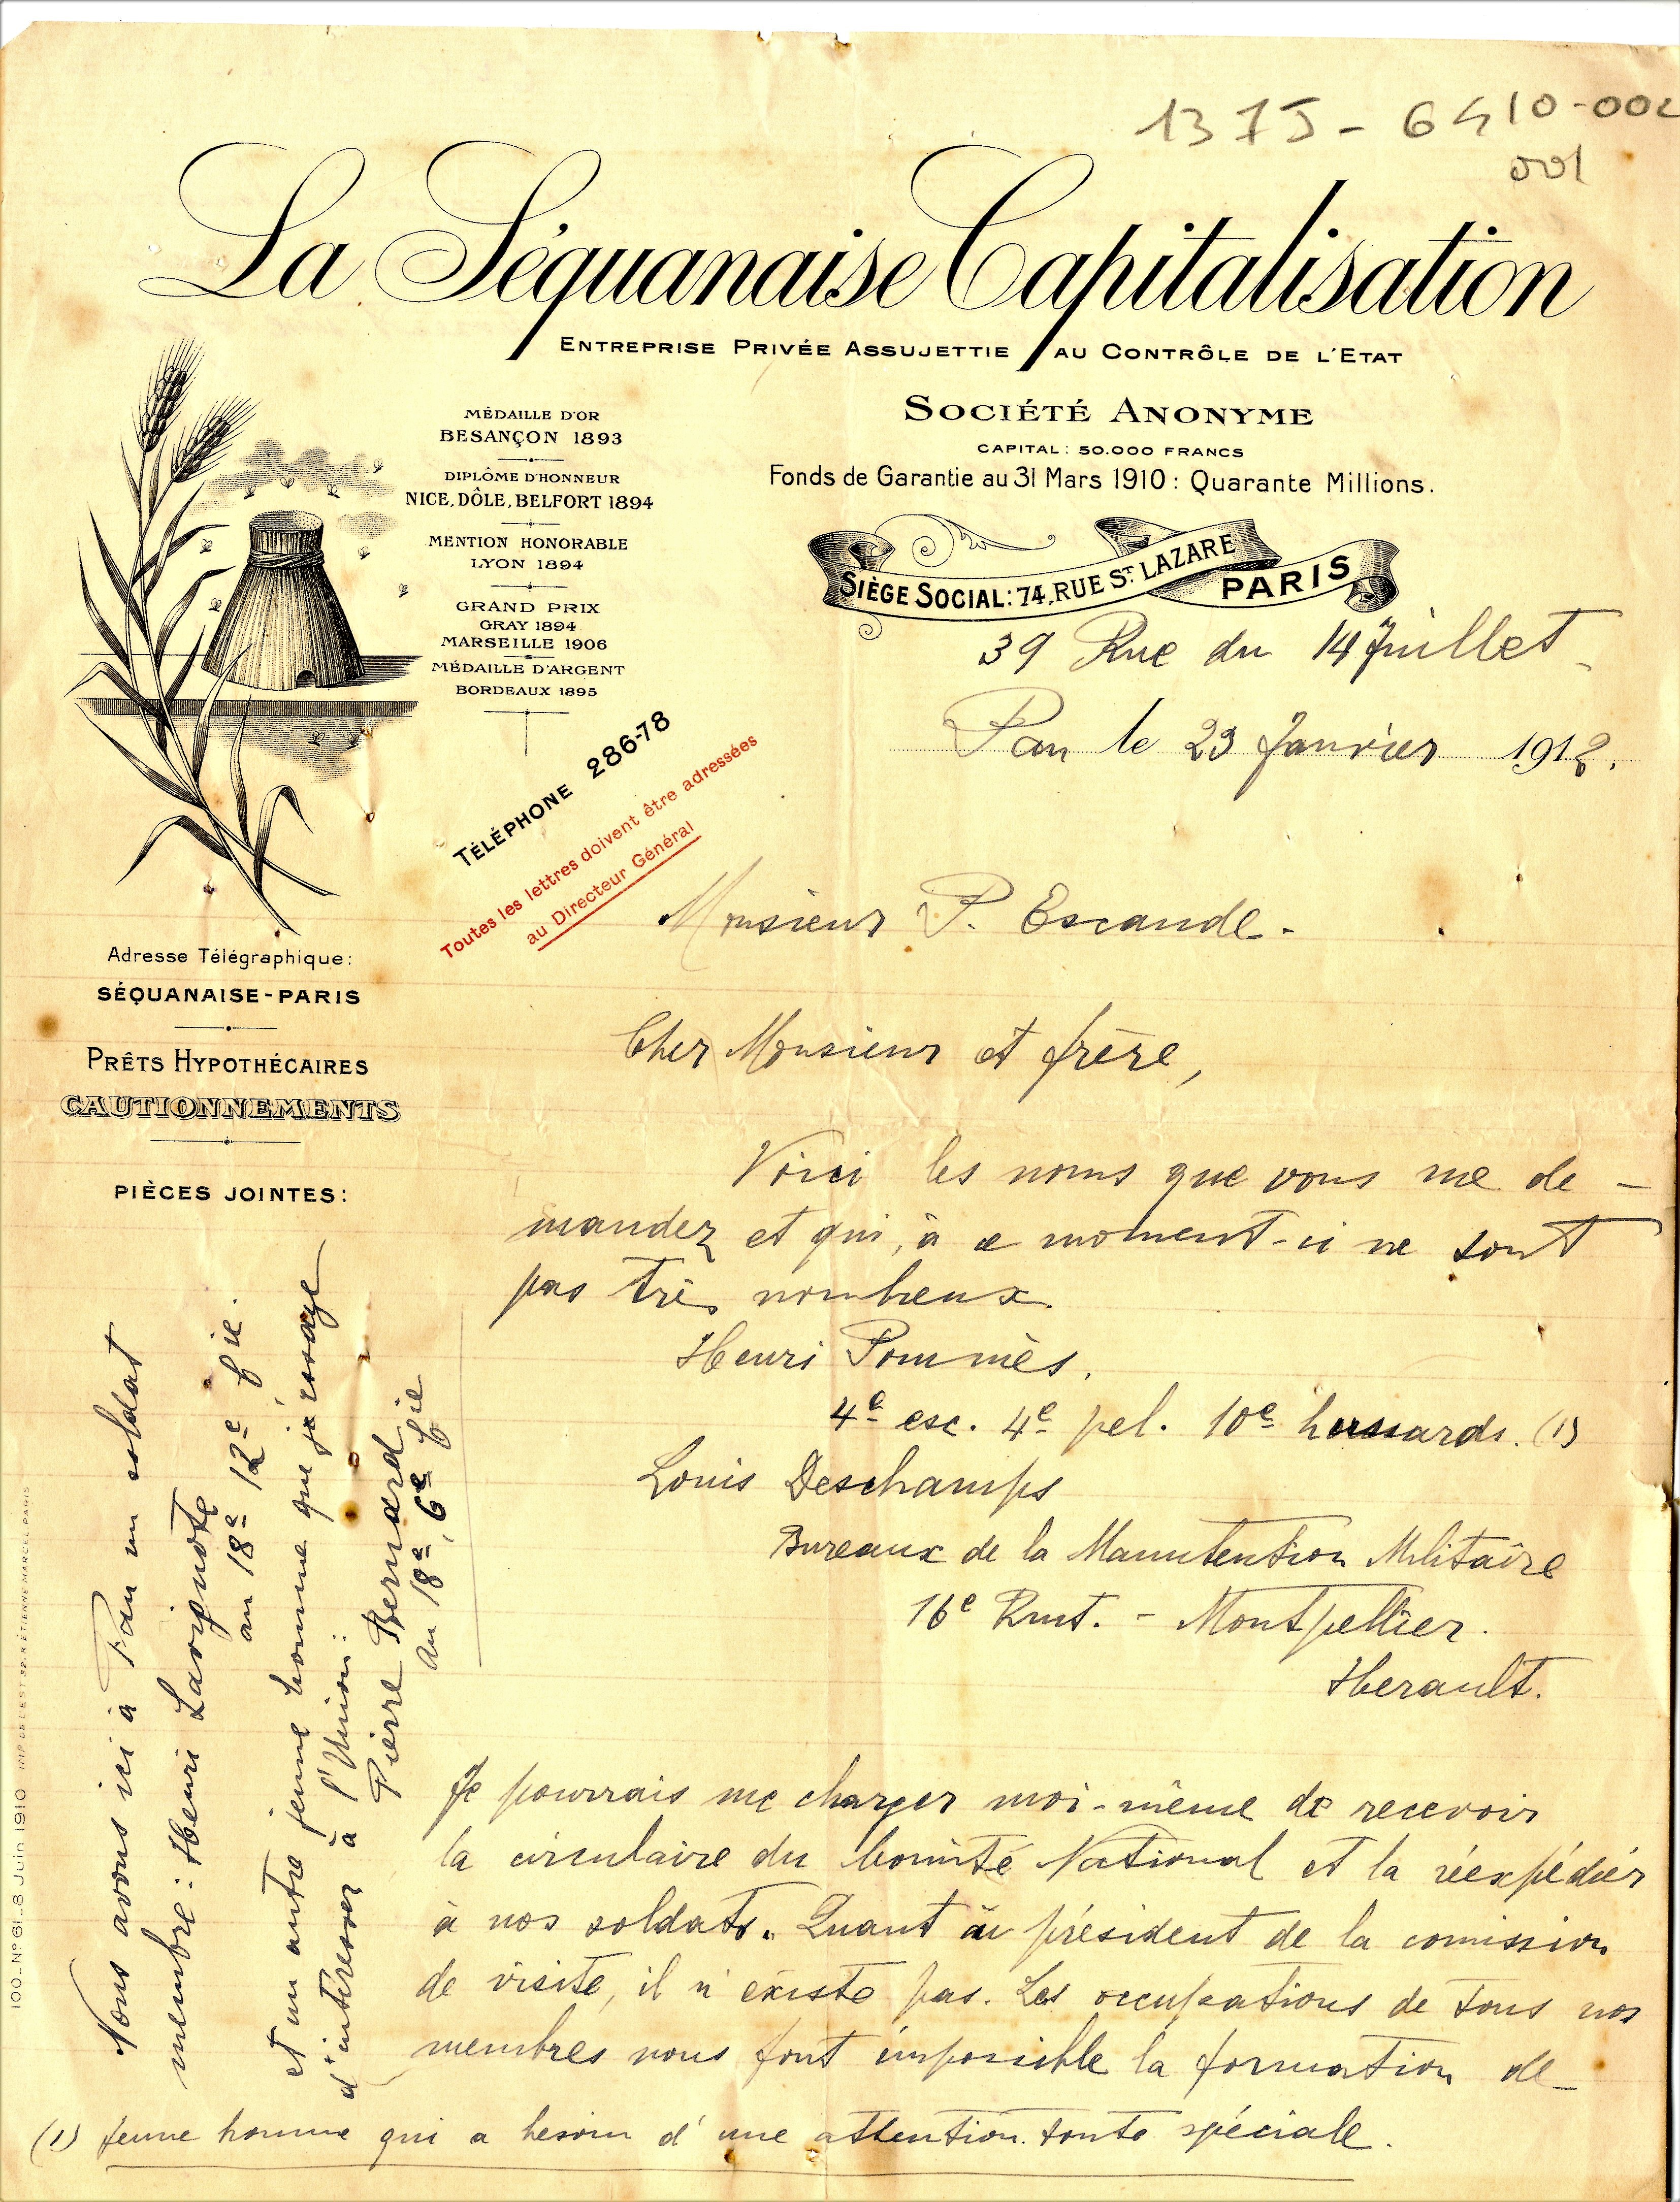 137J - 6410-002
001
La Séquanaise Capitalisation
ENTREPRISE PRIVÉE ASSUJETTIE AU CONTRÔLE DE L'ETAT
MÉDAILLE D'OR
BESANÇON 1893
DIPLÔME D'HONNEUR
NICE, DÔLE, BELFORT 1894
MENTION HONORABLE
LYON 1894
GRAND PRIX
GRAY 1894
MARSEILLE 1906
MÉDAILLE D'ARGENT
BORDEAUX 1895
SOCIÉTÉ ANONYME
CAPITAL: 50.000 FRANCS
Fonds de Garantie au 31 Mars 1910: Quarante Millions.
SIÈGE SOCIAL: 74, RUE ST LAZARE
PARIS
39 Rue du 14 Juillet
Pau le 23 Janvier 1912.
TÉLÉPHONE 286-78
Toutes les lettres doivent être adressées
au Directeur Général
Monsieur P. Escande.
Adresse Télégraphique:
SÉQUANAISE-PARIS
PRÊTS HYPOTHÉCAIRES
CAUTIONNEMENTS
PIÈCES JOINTES:
Cher Monsieur et frère,
Voici les noms que vous me de-
mandez et qui, à ce moment-ci ne sont
pas très nombreux.
Henri Pommès.
4e esc. 4e pel. 10e hussards. (1)
Louis Deschamps
Bureaux de la Manutention Militaire
16e Rmt. - Montpellier.
Herault.
Je pourrais me charger moi-même de recevoir
la circulaire du Comité National et la réexpédier
à nos soldats. Quant au président de la comission
de visite, il n'existe pas. Les occupations de tous nos
membres nous font impossible la formation de
(1) Jeune homme qui a besoin d'une attention toute spéciale.
Nous avons ici à Pau un soldat
membre: Henri Lavignote
au 18e 12e Cie.
et un autre jeune homme que j'essaye
d'intéresser à l'Union:
Pierre Bernard
au 18e, 6e Cie
100._N° 61_8 Juin 1910 IMP. DE L'EST. 52. R. ÉTIENNE MARCEL. PARIS